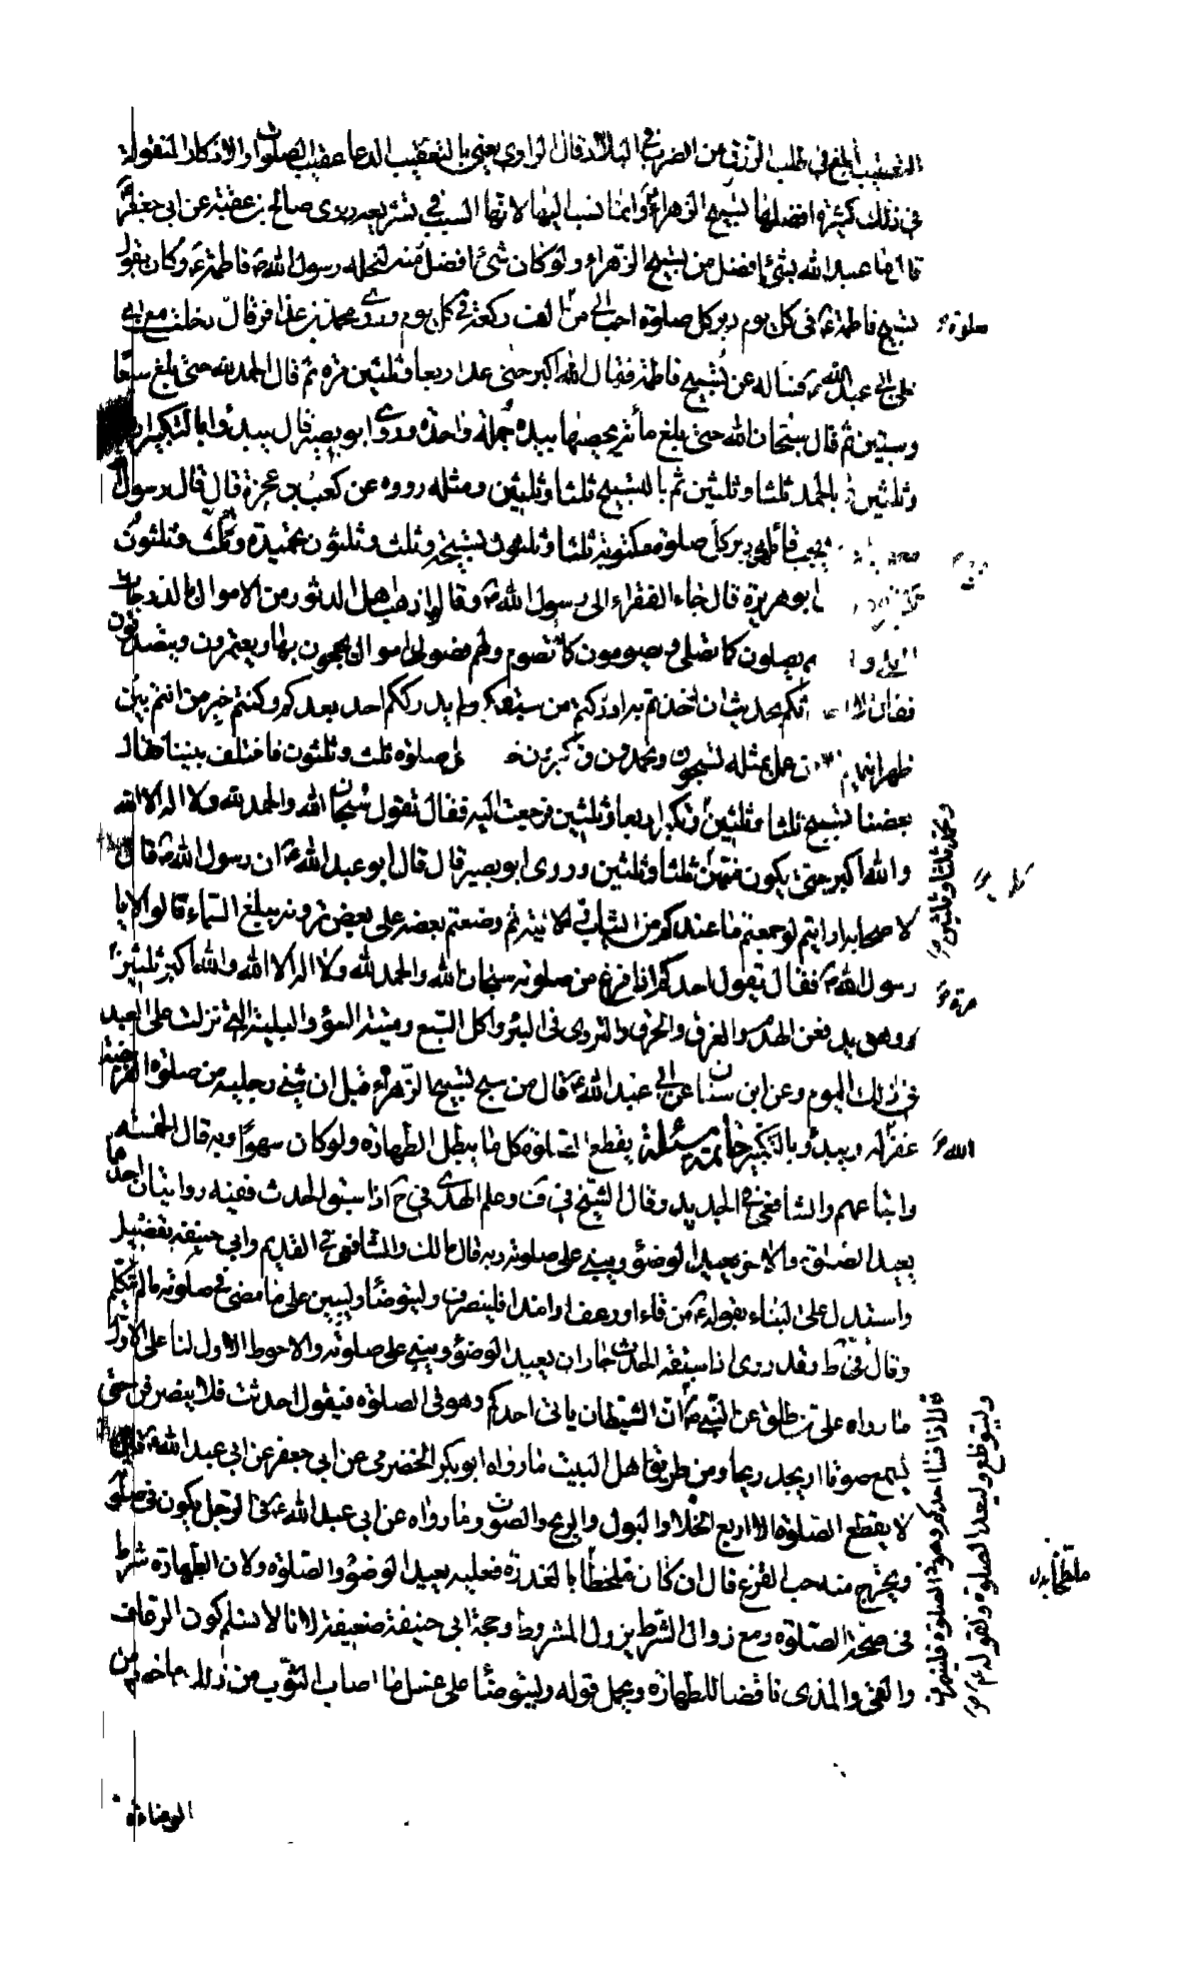 التعقيب ابلغ في طلب الرزق من الضرب في البلاد قال الراوي يعني بالتعقيب الدعا عقيب الصلوات والاذكار المنقولة
في ذلك كثيرة افضلها تسبيح الزهراء ع وانما نسب اليها لانها السبب في تشريعه روى صالح بن عقبة عن ابي جعفر ع
قال ما عبد الله بشئ افضل من تسبيح الزهراء ولو كان شئ افضل منه لنحله رسول الله ص فاطمة ع وكان يقول
تسبيح فاطمة ع في كل يوم دبر كل صلوة احب الي من الف ركعة في كل يوم وروى محمد بن عذافر قال دخلت مع ابي
على ابي عبد الله ع فساله عن تسبيح فاطمة فقال الله اكبر حتى عد اربعا وثلثين مرة ثم قال الحمد لله حتى بلغ سبعا
وستين ثم قال سبحان الله حتى بلغ مائة يحصيها بيده جملة واحدة وروى ابو بصير قال يبدؤ بالتكبير اربعا
وثلثين ثم بالحمد ثلثا وثلثين ثم بالتسبيح ثلثا وثلثين ومثله رووه عن كعب بن عجرة قال قال رسول
يخيب قائلهن دبر كل صلوة مكتوبة ثلثا وثلثون تسبيحة وثلث وثلثون تحميدة وثلث وثلثون
ابو هريرة قال جاء الفقراء الى رسول الله ص وقالوا ذهب اهل الدثور من الاموال بالدرجات
يصلون كما نصلي ويصومون كما نصوم ولهم فضول اموال يحجون بها ويعتمرون ويتصدقون
فقال الا بحديث ان اخذتم به ادركتم من سبقكم ولم يدرككم احد بعدكم وكنتم خير من انتم بين
ظهرانيهم من عمل بمثله تسبحون وتحمدون وتكبرون صلوة ثلث وثلثون فاختلف بيننا فقال
بعضنا نسبح ثلثا وثلثين ونكبر اربعا وثلثين فرجعت اليه فقال تقول سبحان الله والحمد لله ولا اله الا الله
والله اكبر حتى يكون منهن ثلثا وثلثين وروى ابو بصير قال قال ابو عبد الله ع ان رسول الله ص قال
لاصحابه ارايتم لو جمعتم ما عندكم من الثياب والانية ثم وضعتم بعضه على بعض ترونه يبلغ السماء قالوا لا يا
رسول الله ص فقال يقول احدكم اذا فرغ من صلوته سبحان الله والحمد لله ولا اله الا الله والله اكبر ثلثين
وهن يدفعن الهدم والغرق والحرق والتردى في البئر واكل السبع وميتة السوء والبلية التي نزلت على العبد
في ذلك اليوم وعن ابن سنان عن ابي عبد الله ع قال من سبح تسبيح الزهراء قبل ان يثني رجليه من صلوة الفريضة
غفر له ويبدؤ بالتكبير خاتمة مسئلة يقطع الصلوة كل ما يبطل الطهارة ولو كان سهوا وبه قال الخمسة
واتباعهم والشافعي في الجديد وقال الشيخ في ف وعلم الهدى في ح اذا سبق الحدث ففيه روايتان احدهما
يعيد الصلوة والاخر يعيد الوضوء ويبني على صلوته وبه قال مالك والشافعي في القديم وابي حنيفة بتفصيل
واستدل على البناء بقوله ع من قاء او رعف او امذا فلينصرف وليتوضا وليبين على ما مضى في صلوته ما لم يتكلم
وقال في ط وقد روى اذا سبقه الحدث جاز ان يعيد الوضوء ويبني على صلوته والاحوط الاول لنا على الاول
ما رواه علي بن طلق عن النبي ص ان الشيطان ياتي احدكم وهو في الصلوة فيقول احدثت فلا ينصرفن حتى
يسمع صوتا او يجد ريحا ومن طريق اهل البيت ما رواه ابو بكر الحضرمي عن ابي جعفر عن ابي عبد الله ع قال
لا يقطع الصلوة الا اربع الخلا والبول والريح والصوت وما رواه عن ابي عبد الله ع في الرجل يكون في صلوته
ويخرج منه حب القرع قال ان كان ملطخا بالعذرة فعليه يعيد الوضوء والصلوة ولان الطهارة شرط
في صحة الصلوة ومع زوال الشرط يزول المشروط وحجة ابي حنيفة ضعيفة لانا لا نسلم كون الرعاف
والقئ والمذى ناقضا للطهارة ويحمل قوله وليتوضا على غسل ما اصاب الثوب من ذلك
صلوة
وتحمد ثلثا وثلثين
مرة
الله
قال اذا فسا احدكم وهو في الصلوة فلينصرف
وليتوضا وليعد الصلوة ولقوله ع
الوضاءة